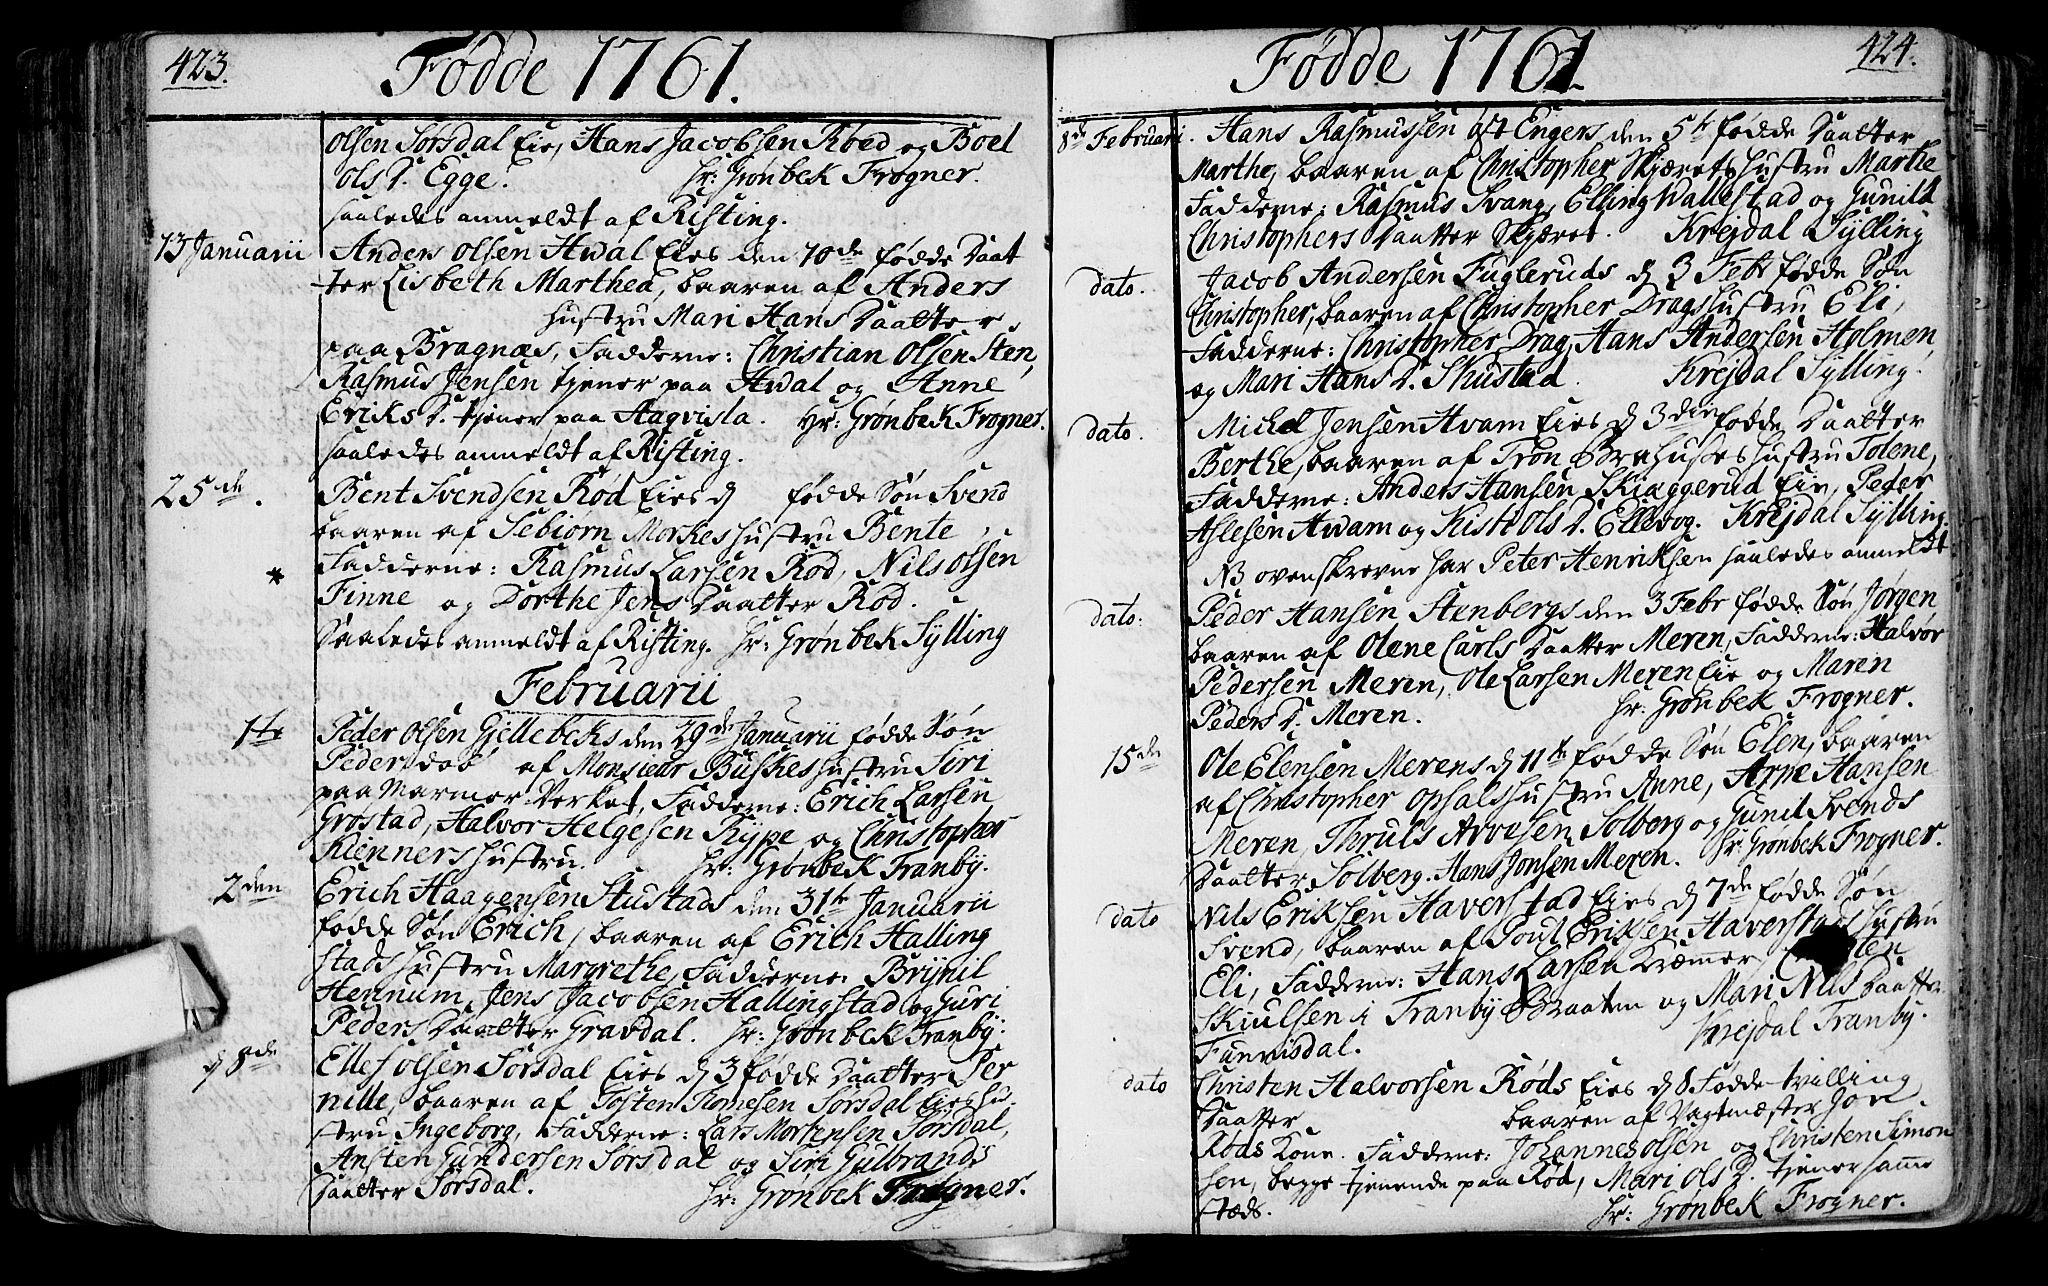 423.
Fødde 1761.
Olsen Sorsdal Eie, Hans Jacobsen Röed og Boel
Ols D. Egge. Hr: Grønbek Frogner.
saaledes anmeldt af Risting.
13 Januarii Anders Olsen Awal Eies den 10de fødde Daat
ter Lisbeth Marthea, baaren af Anders
Hustru Mari Hans Daatter
paa Bragnæs, Fadderne: Christian Olsen Sten,
Rasmus Jensen tjener paa Awal og Anne
Eriks D. tjener paa Aaqvisla. Hr: Grønbek Frogner.
saaledes anmeldt af Risting.
25de. Bent Svendsen Rød Eies d fødde Søn Svend
baaren af Sebiørn Morkes Hustru Bente,
* Fadderne: Rasmus Larsen Rød, Nils Olsen
Finne og Dorthe Jens Daatter Rød.
Saaledes anmeldt af Risting. Hr: Grønbek Sylling
Februarii
1te Peder Olsen Gjellebeks den 29de Januarii fødde Søn
Peder af Monsieur Buskes Hustru Siri
paa Marmor Verket, Fadderne: Erich Larsen
Grøstad, Halvor Helgesen Rype og Christopher
Kienners Hustru. Hr: Grønbek Tranby.
2den Erich Haagensen Stustads den 31te Januarii
fødde Søn Erich, baaren af Erich Halling
stads Hustru Margrethe, Fadderne Brynil
Hennum, Jens Jacobsen Hallingstad og Guri
Peders Daatter Gravdal. Hr: Grønbek Tranby.
d 8de Ellef Olsen Sorsdal Eies d 3 fødde Daatter Per
nille, baaren af Tosten Sorsdal Eies Hu-
stru Ingeborg, Fadderne: Lars Mortensen Sorsdal,
Ansten Gundersen Sorsdal og Siri Gulbrands
Daatter Sorsdal. Hr: Grønbek Frogner.
424.
Fødde 1761.
8de Februari. Hans Rasmussen øst Engers den 5te fødde Daatter
Marthe, baaren af Christopher Skjærets Hustru Marthe
Fadderne: Rasmus Svang, Elling Wallestad og Gunild
Christophers Daatter Skjæret. Krejdal Sylling
dato. Jacob Andersen Fugleruds d 3 Febr fødde Søn
Christopher, baaren af Christopher Drags Hustru Eli,
Fadderne: Christopher Drag, Hans Andersen Holmen
og Mari Hans D. Skustad. Krejdal Sylling.
dato. Michel Jensen Hvam Eies d 3die fødde Daatter
Berthe, baaren af Tron Brahuses Hustru Tolene,
Fadderne: Anders Hansen Skiæggerud Eie, Peder
Aslesen Awam og Kisti Ols D. Ellevog. Krejdal Sylling.
NB ovenskrevne har Peter Henriksen saaledes anmeldt
dato: Peder Hansen Stenbergs den 3 Febr fødde Søn Jørgen
baaren af Olene Carls Daatter Meren, Fadderne: Halvor
Pedersen Meren, Ole Larsen Meren Eie og Maren
Peders D. Meren. Hr: Grønbek Frogner.
15de Ole Elensen Merens d 11te fødde Søn Elen, baaren
af Christopher Opsals Hustru Anne, Arne Hansen
Meren, Thruls Arvesen Solberg og Gunil Svends
Daatter Solberg. Hans Jonsen Meren. Hr: Grønbek Frogner.
dato Nils Eriksen Haverstad Eies d 7de fødde Søn
Svend, baaren af Poul Eriksen Haverstads Hustru
Eli, Fadderne: Hans Larsen Kræmer,
Skiulsen i Tranby Braaten og Mari Nils Daatter
Funnisdal. Krejdal Tranby.
dato Christen Halvorsen Røds Eies d 8 Fødde tvilling
Daatter baaren af Vagtmæster Jon
Røds Kone. Fadderne: Johannes Olsen og Christen Simon
sen, begge tjenende paa Rød, Mari Ols D. tjener samme
stæds. Hr: Grønbek Frogner.